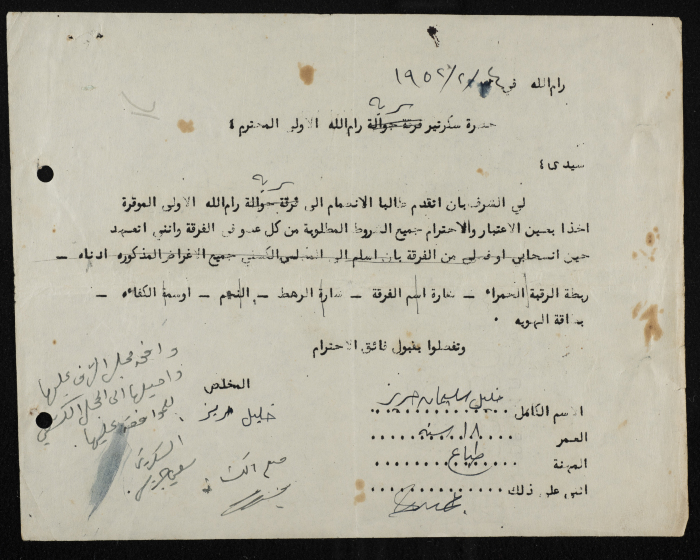 رام الله في ٤/٢/١٩٥٢
سرية
حضرة سكرتير فرقة جوالة رام الله الاولى المحترم ،
سيدي ،
سرية
لي الشرف بان اتقدم طالبا الانضمام الى فرقة جوالة رام الله الاولى الموقرة
اخذا بعين الاعتبار والاحترام جميع الشروط المطلوبة من كل عضو في الفرقة وانني اتعهد
حين انسحابي او فصلي من الفرقة بان اسلم الى المجلس الكشفي جميع الاغراض المذكوره ادناه —
ربطة الرقبة الحمراء — شارة اسم الفرقة — شارة الرهط — النجم — اوسمة الكفاءه —
بطاقة الهويه .
وتفضلوا بقبول فائق الاحترام
المخلص
خليل حريز
الاسم الكامل خليل سليمان حريز
العمر ١٨ سنه
المهنة طباع
اثني على ذلك
وافق مجلس
واحيلها الى المجلس الكشفي
للموافقه عليها.
السكرتير